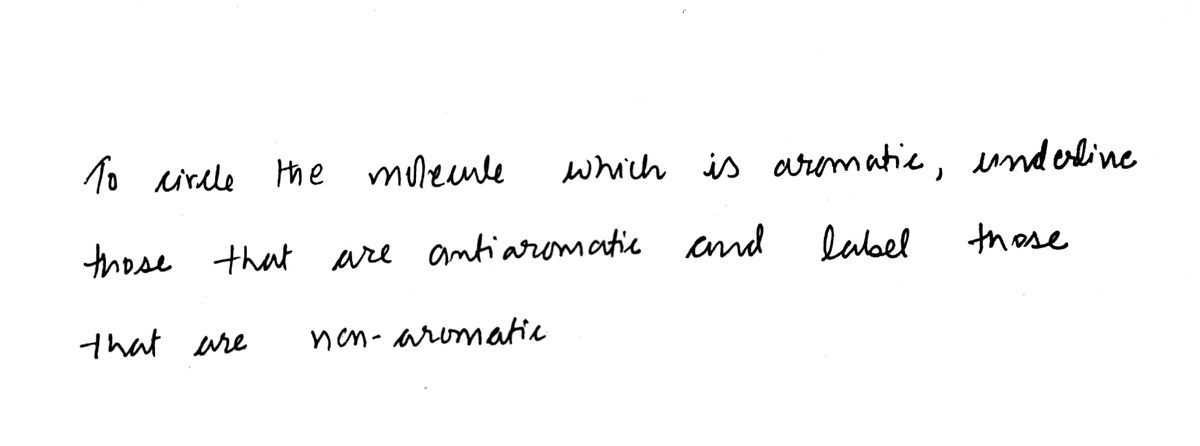 To circle the molecule which is aromatic, underline
those that are antiaromatic and label those
that are non-aromatic